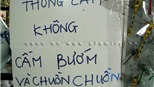 THÔNG CẢM
KHÔNG
CẦM BƯỚM
VÀ CHUỒN CHUỒN